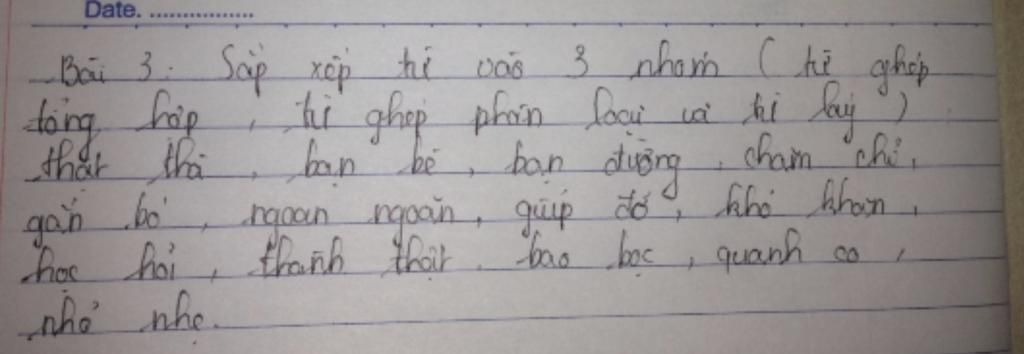 Date. ................
Bài 3: Sắp xếp từ vào 3 nhóm ( từ ghép
tổng hợp , từ ghép phân loại và từ láy )
thật thà , bạn bè , bạn đường , chăm chỉ ,
gắn bó , ngoan ngoãn , giúp đỡ , khó khăn ,
học hỏi , thành thật . bao bọc , quanh co ,
nhỏ nhẹ .